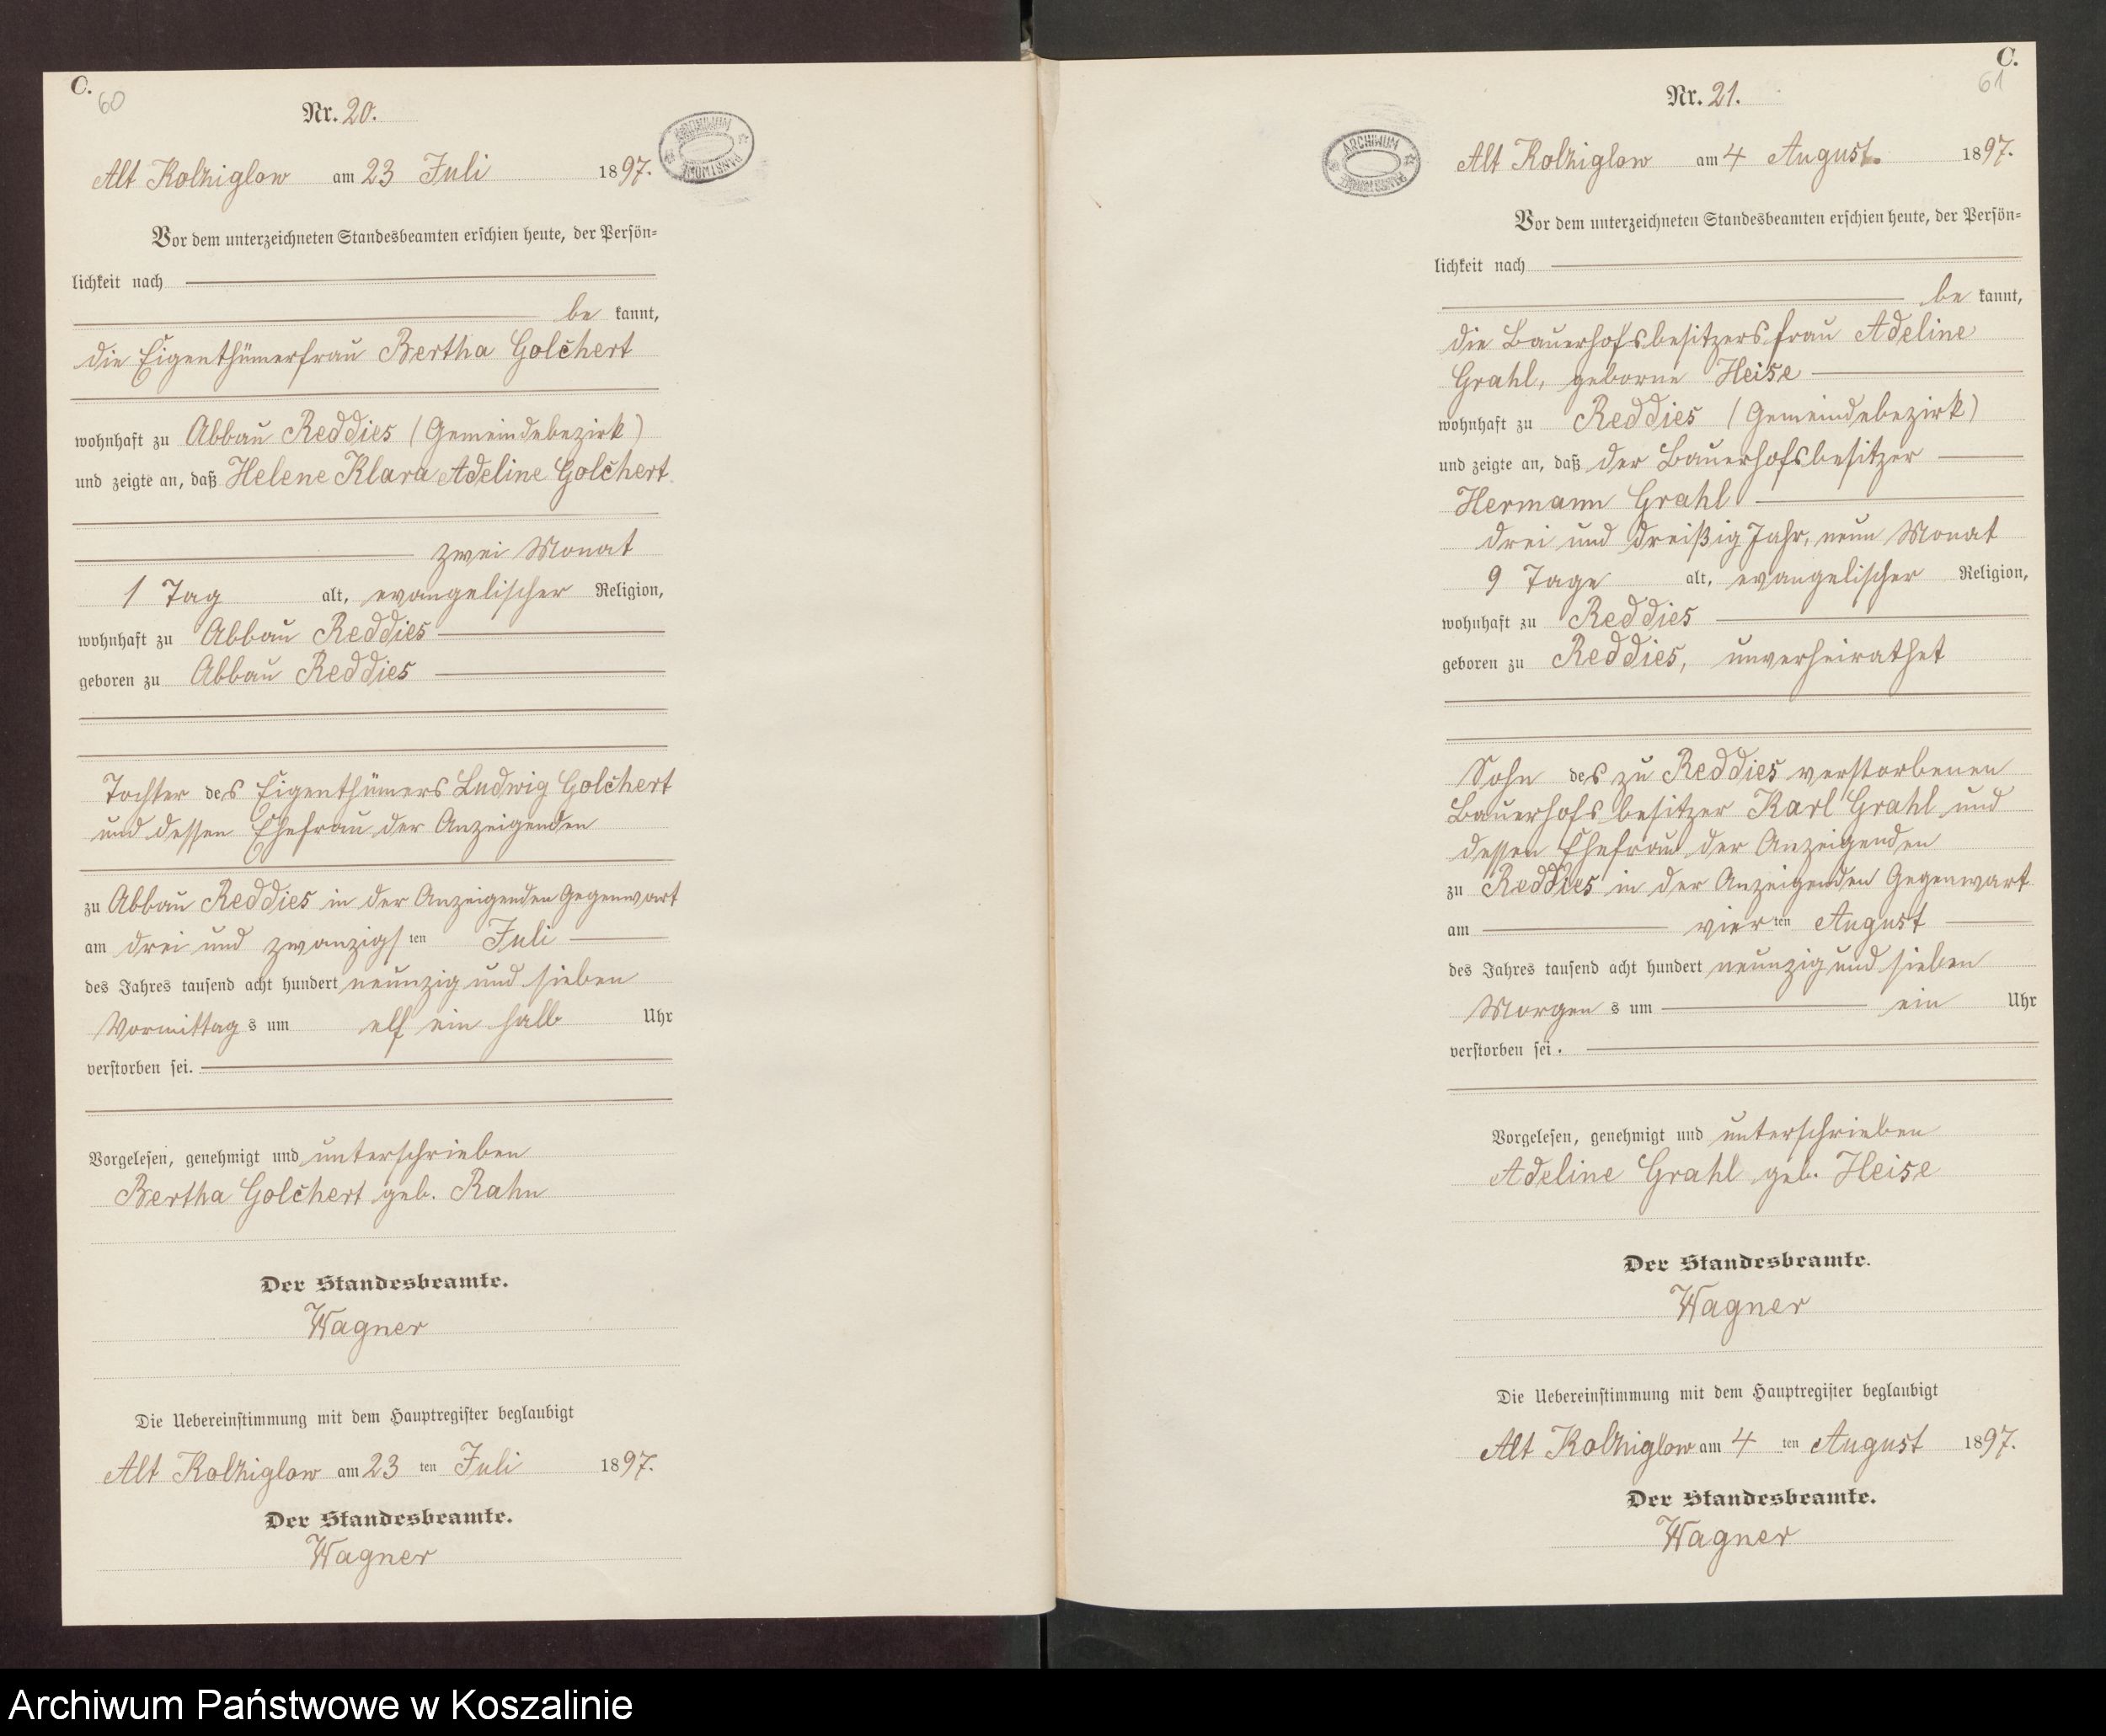 C.
60
Nr. 20.
ARCHIWUM PAŃSTWOWE
Alt Kolziglow am 23 Juli 1897.
Vor dem unterzeichneten Standesbeamten erschien heute, der Persön-
lichkeit nach
be kannt,
die Eigenthümerfrau Bertha Golchert
wohnhaft zu Abbau Reddies (Gemeindebezirk)
und zeigte an, daß Helene Klara Adeline Golchert
zwei Monat
1 Tag alt, evangelischer Religion,
wohnhaft zu Abbau Reddies
geboren zu Abbau Reddies
Tochter des Eigenthümers Ludwig Golchert
und dessen Ehefrau der Anzeigenden
zu Abbau Reddies in der Anzeigenden Gegenwart
am drei und zwanzigsten Juli
des Jahres tausend acht hundert neunzig und sieben
Vormittags um elf ein halb Uhr
verstorben sei.
Vorgelesen, genehmigt und unterschrieben
Bertha Golchert geb. Rahn
Der Standesbeamte.
Wagner
Die Uebereinstimmung mit dem Hauptregister beglaubigt
Alt Kolziglow am 23 ten Juli 1897.
Der Standesbeamte.
Wagner
C.
61
Nr. 21.
ARCHIWUM PAŃSTWOWE
Alt Kolziglow am 4 August 1897.
Vor dem unterzeichneten Standesbeamten erschien heute, der Persön-
lichkeit nach
be kannt,
die Bauerhofsbesitzersfrau Adeline
Grahl, geborne Heise
wohnhaft zu Reddies (Gemeindebezirk)
und zeigte an, daß der Bauerhofsbesitzer
Hermann Grahl
drei und dreißig Jahr, neun Monat
9 Tage alt, evangelischer Religion,
wohnhaft zu Reddies
geboren zu Reddies, unverheirathet
Sohn des zu Reddies verstorbenen
Bauerhofsbesitzer Karl Grahl und
dessen Ehefrau der Anzeigenden
zu Reddies in der Anzeigenden Gegenwart
am vierten August
des Jahres tausend acht hundert neunzig und sieben
Morgens um ein Uhr
verstorben sei.
Vorgelesen, genehmigt und unterschrieben
Adeline Grahl geb. Heise
Der Standesbeamte.
Wagner
Die Uebereinstimmung mit dem Hauptregister beglaubigt
Alt Kolziglow am 4 ten August 1897.
Der Standesbeamte.
Wagner
Archiwum Państwowe w Koszalinie